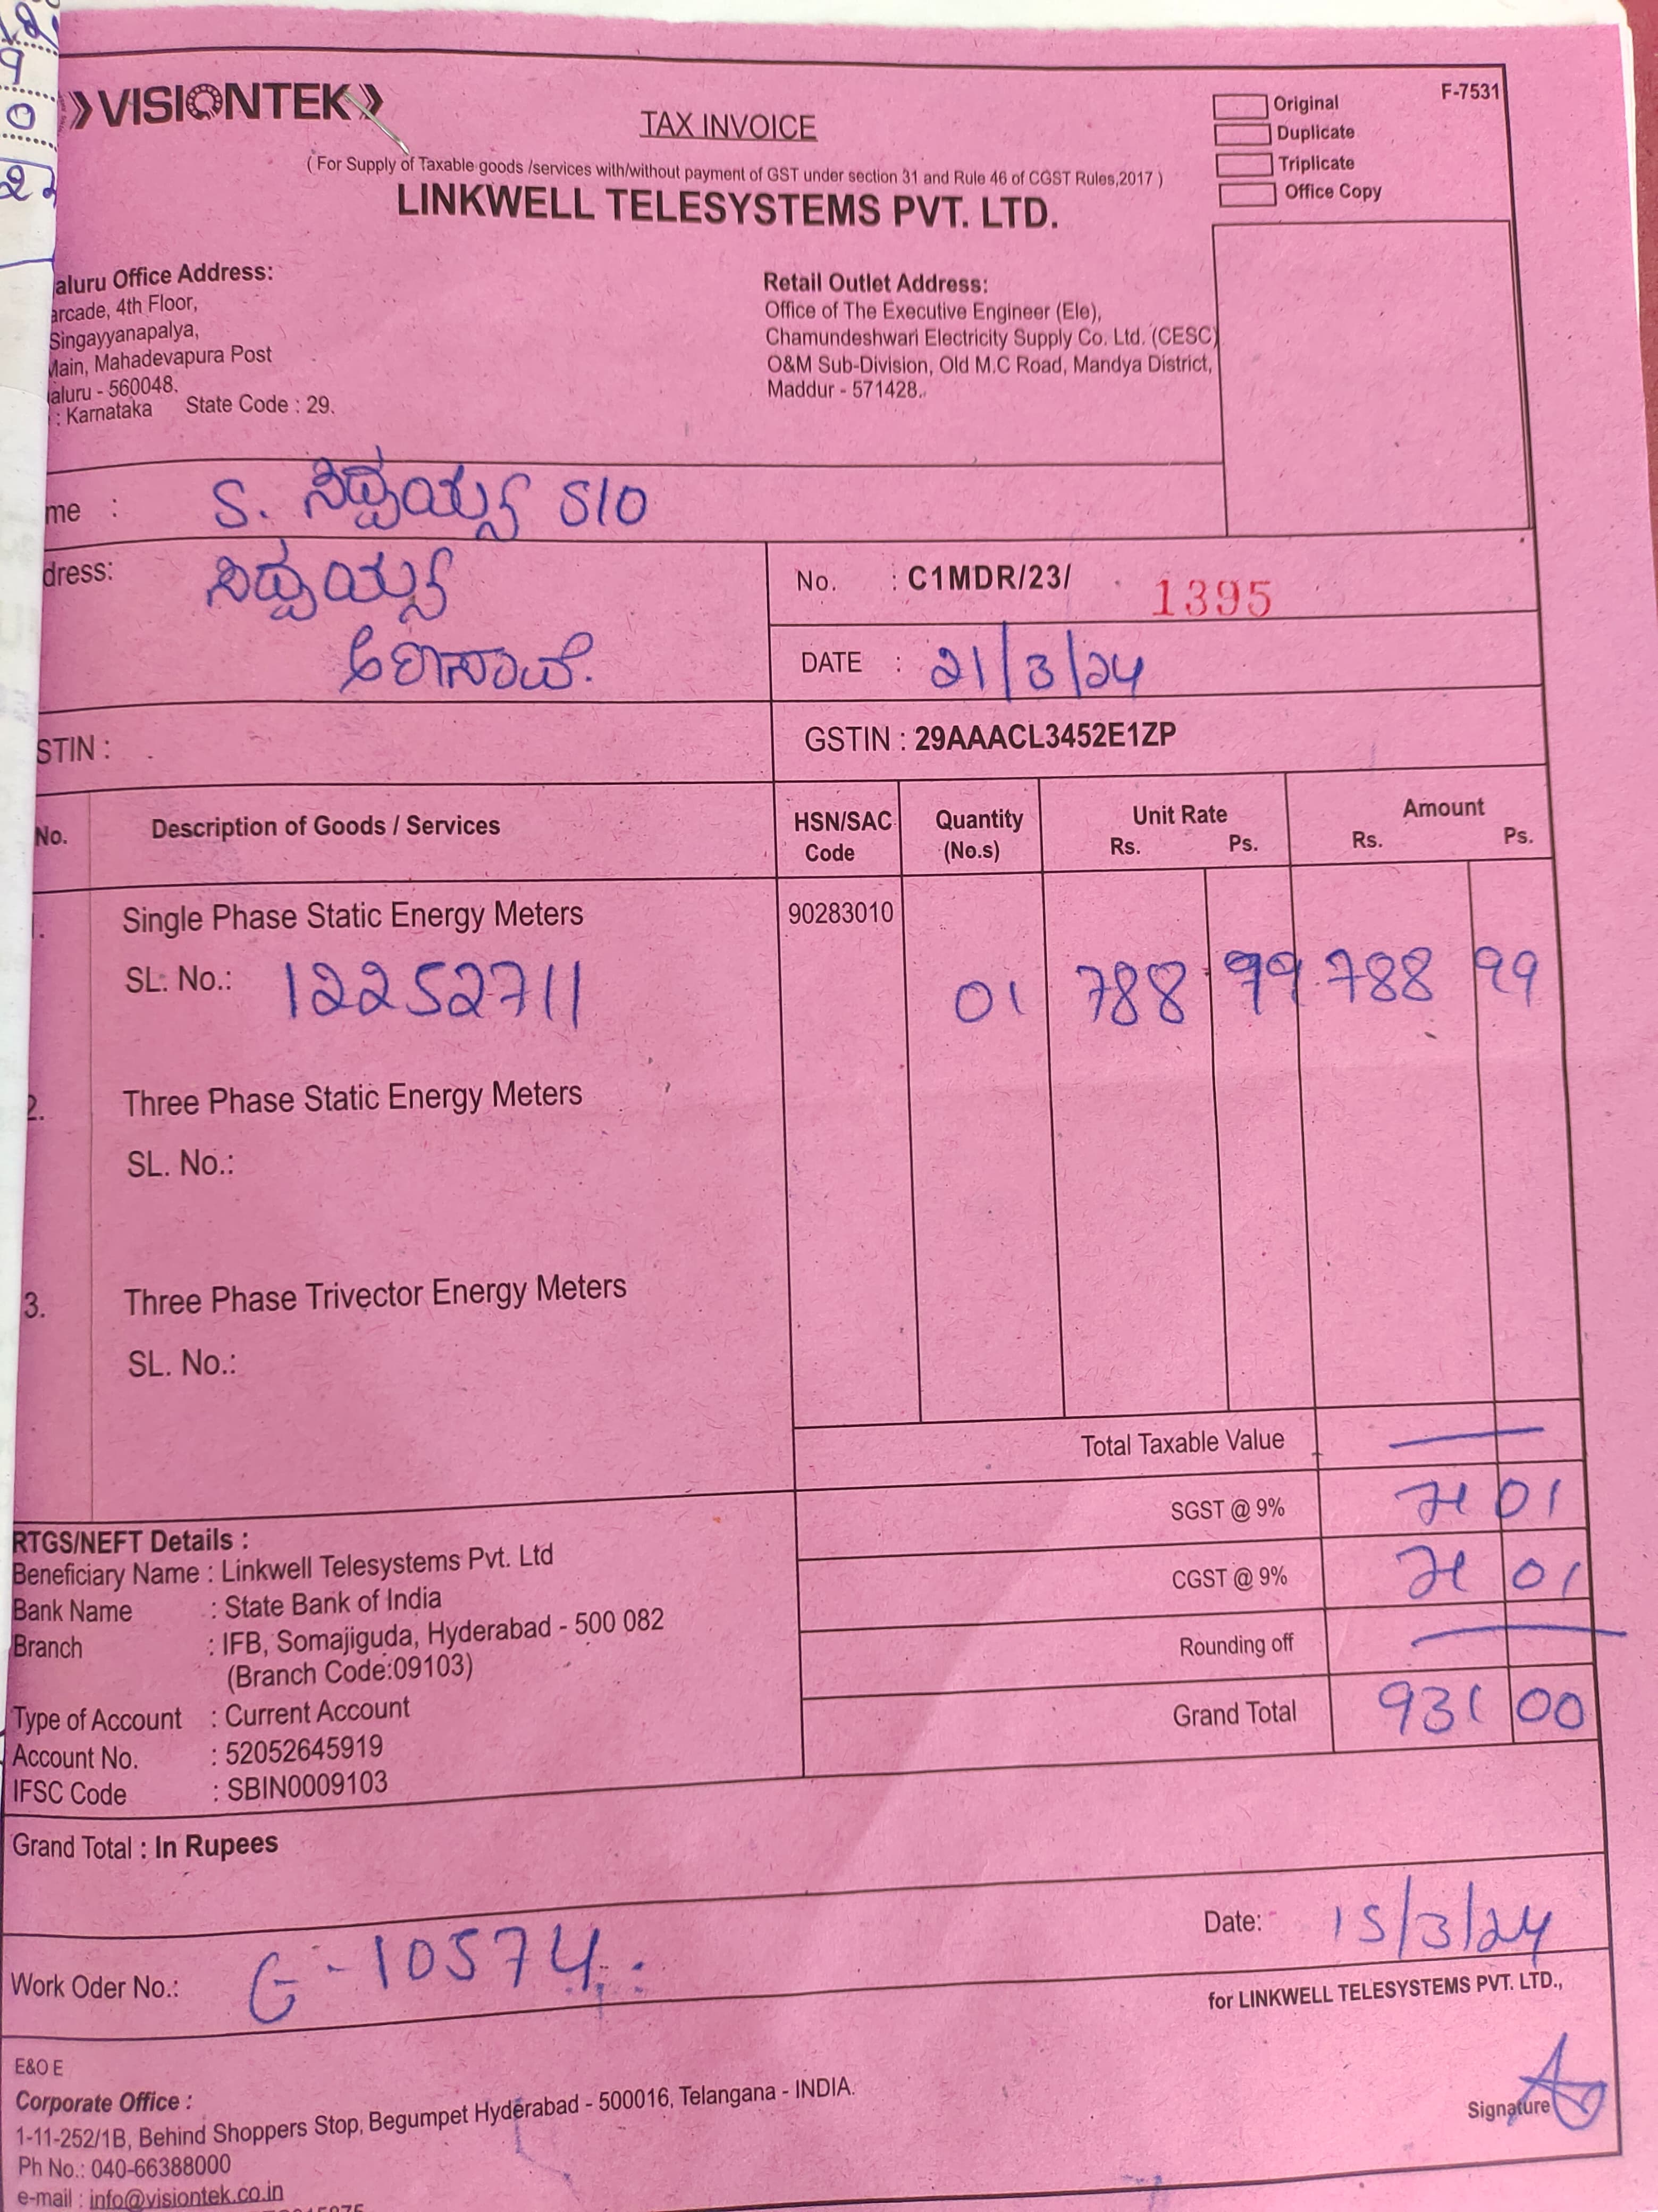 VISIONTEK
TAX INVOICE
F-7531
Original
Duplicate
Triplicate
Office Copy
( For Supply of Taxable goods /services with/without payment of GST under section 31 and Rule 46 of CGST Rules,2017 )
LINKWELL TELESYSTEMS PVT. LTD.
aluru Office Address:
arcade, 4th Floor,
Singayyanapalya,
Main, Mahadevapura Post
aluru - 560048.
: Karnataka State Code : 29.
Retail Outlet Address:
Office of The Executive Engineer (Ele),
Chamundeshwari Electricity Supply Co. Ltd. (CESC)
O&M Sub-Division, Old M.C Road, Mandya District,
Maddur - 571428.
me : S. ಸಿದ್ದಯ್ಯ S/O
dress: ಸಿದ್ದಯ್ಯ
No. : C1MDR/23/ 1395
DATE : 21/3/24
STIN :
GSTIN : 29AAACL3452E1ZP
No. Description of Goods / Services HSN/SAC Code Quantity (No.s) Unit Rate Rs. Ps. Amount Rs. Ps.
1. Single Phase Static Energy Meters 90283010
SL. No.: 12252711 01 788 99 788 99
2. Three Phase Static Energy Meters
SL. No.:
3. Three Phase Trivector Energy Meters
SL. No.:
Total Taxable Value —
SGST @ 9% 71 01
CGST @ 9% 71 01
Rounding off —
Grand Total 931 00
RTGS/NEFT Details :
Beneficiary Name : Linkwell Telesystems Pvt. Ltd
Bank Name : State Bank of India
Branch : IFB, Somajiguda, Hyderabad - 500 082
(Branch Code:09103)
Type of Account : Current Account
Account No. : 52052645919
IFSC Code : SBIN0009103
Grand Total : In Rupees
Work Oder No.: G-10574
Date: 15/3/24
for LINKWELL TELESYSTEMS PVT. LTD.,
Signature
E&O E
Corporate Office :
1-11-252/1B, Behind Shoppers Stop, Begumpet Hyderabad - 500016, Telangana - INDIA.
Ph No.: 040-66388000
e-mail : info@visiontek.co.in